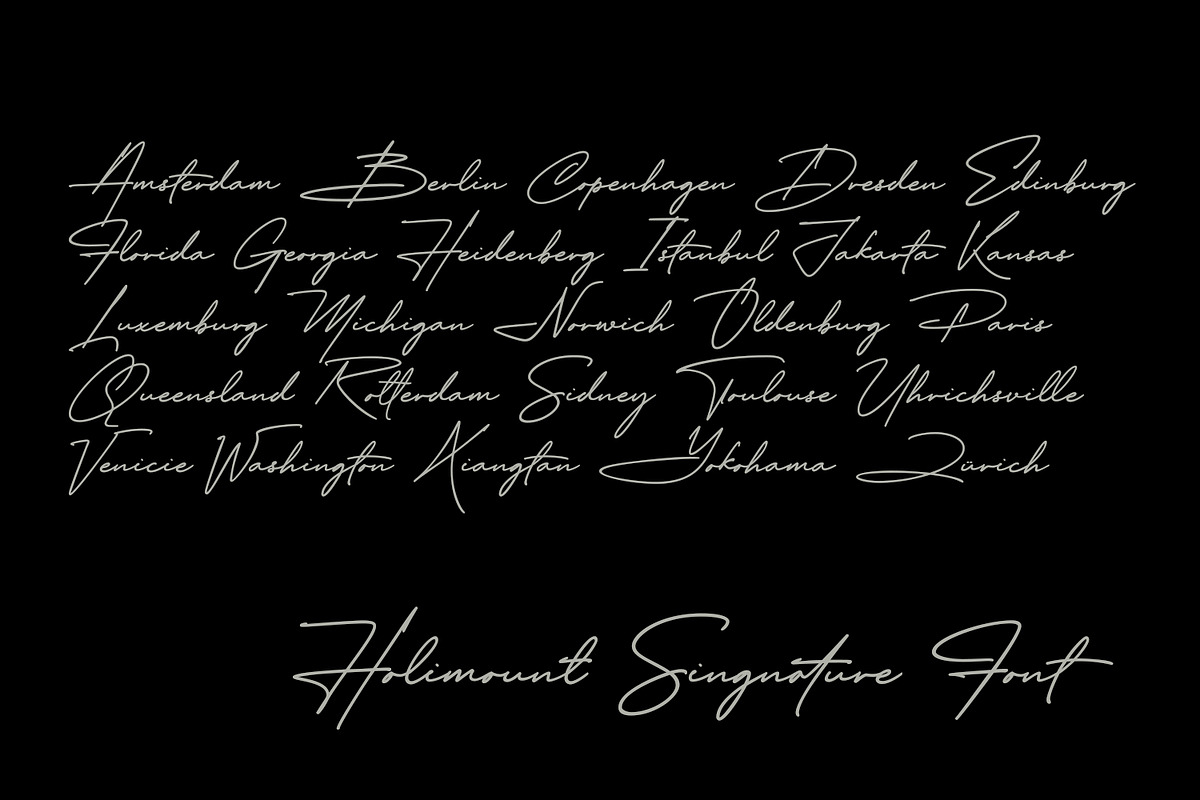 Amsterdam Berlin Copenhagen Dresden Edinburg
Florida Georgia Heidenberg Istanbul Jakarta Kansas
Luxemburg Michigan Norwich Oldenburg Paris
Queensland Rotterdam Sidney Toulouse Uhrichsville
Venicie Washington Xiangtan Yokohama Zürich
Holimount Singnature Font